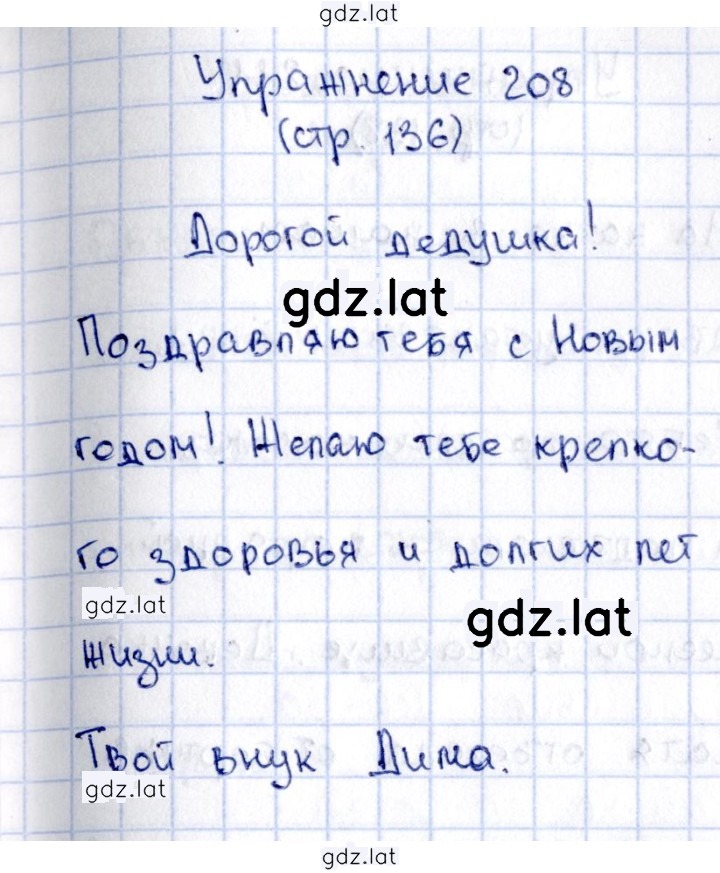 gdz.lat
Упражнение 208
(стр. 136)
Дорогой дедушка!
gdz.lat
Поздравляю тебя с Новым
годом! Желаю тебе крепко-
го здоровья и долгих лет
gdz.lat
gdz.lat
жизни.
Твой внук Дима.
gdz.lat
gdz.lat